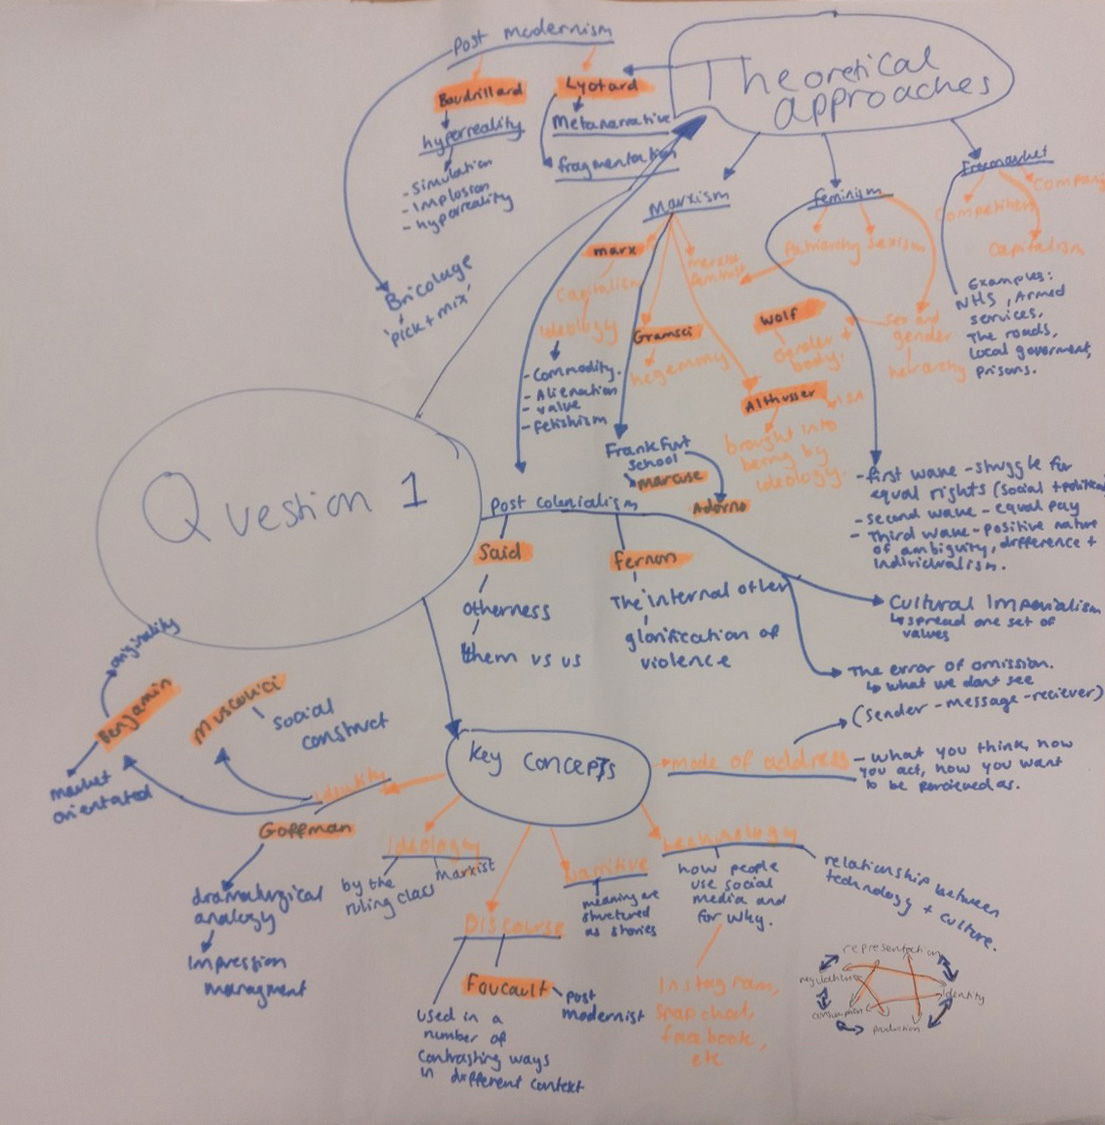 Post modernism
Baudrillard
hyperreality
- Simulation
- Implosion
- hyperreality
Lyotard
Metanarrative
fragmentation
Bricolage
'pick + mix'
Theoretical
approaches
Marxism
marx
Capitalism
ideology
- Commodity.
- Alienation
- value
- fetishism
Gramsci
hegemony
marxist
feminist
Frankfurt
School
marcuse
Adorno
Althusser
ISA
brought into
being by
ideology.
feminism
Patriarchy
Sexism
Sex and
gender
Wolf
Gender +
body.
- first wave - struggle for
equal rights (social + political
- Second wave - equal pay
- Third wave - positive nature
of ambiguity, difference +
individualism.
Freemarket
Competition
Company
Capitalism
Examples:
NHS, Armed
services.
The roads,
local goverment,
prisons.
Question 1
Post colonialism
Said
Otherness
them vs us
fernon
The internal other
glorification of
violence
Cultural Imperialism
spread one set of
values
The error of omission.
what we dont see
Key Concepts
mode of address
(Sender - message - reciever)
- what you think, how
you act, how you want
to be percieved as.
Identity
Benjamin
originality
market
orientated
Muscovici
social
construct
Goffman
dramaturgical
analogy
Impression
managment
Ideology
by the
ruling class
Marxist
Discourse
Foucault
post
modernist
used in a
number of
contrasting ways
in different context
Narritive
meaning are
structured
as stories
Technology
how people
use social
media and
for why.
Instagram,
Snapchat,
facebook,
etc
relationship between
technology + culture.
representation
regulation
identity
consumption
production